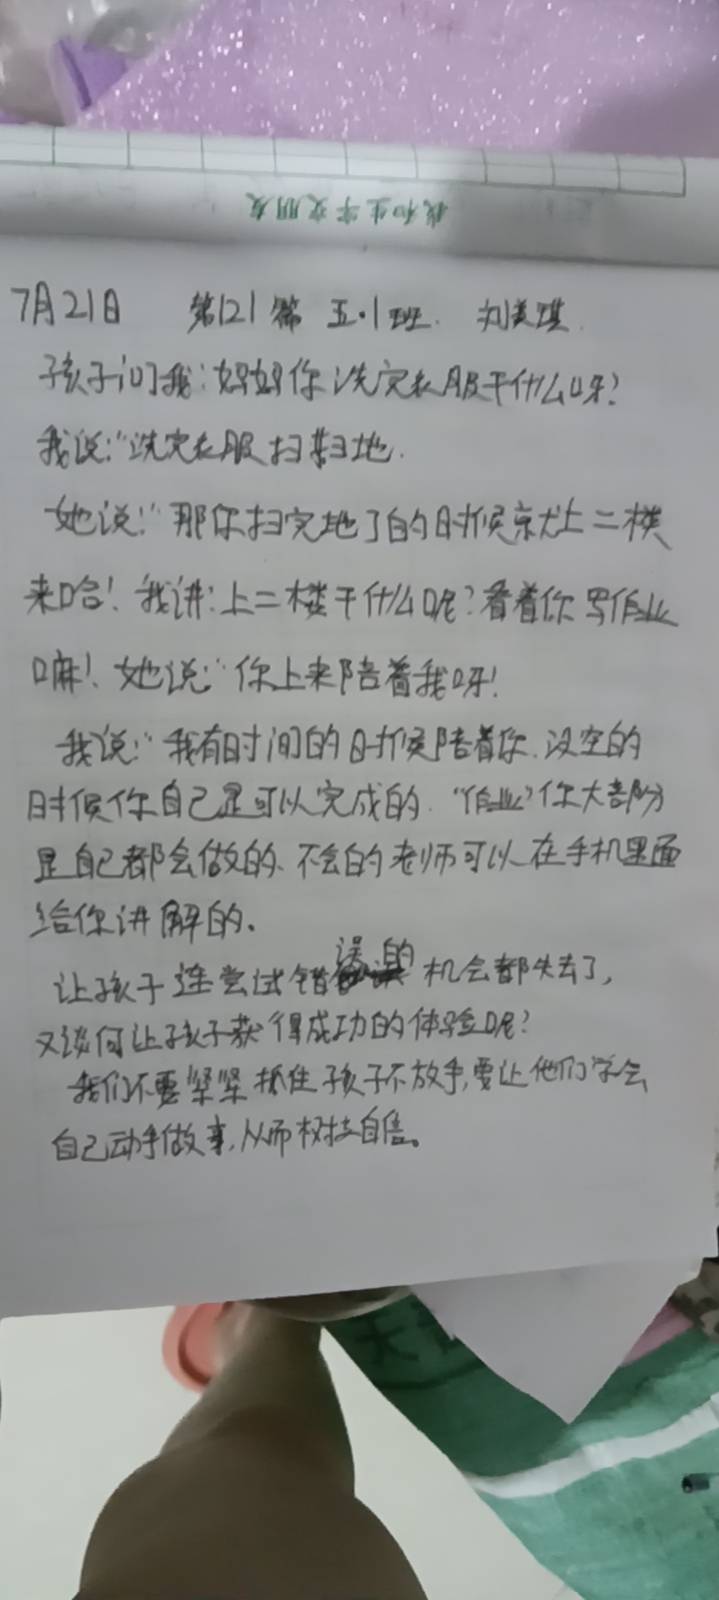 我和生字交朋友
7月21日 第121篇 五·1班. 刘美琪.
孩子问我:妈妈你洗完衣服干什么呀?
我说:“洗完衣服扫扫地.
她说:“那你扫完地了的时候就上二楼
来哈!我讲:上二楼干什么呢?看着你写作业
嘛!她说:“你上来陪着我呀!
我说:“我有时间的时候陪着你.没空的
时候你自己是可以完成的.“作业”你大部分
是自己都会做的、不会的老师可以在手机里面
给你讲解的。
让孩子连尝试错误的机会都失去了,
又谈何让孩子获得成功的体验呢?
我们不要紧紧抓住孩子不放手,要让他们学会
自己动手做事,从而树立自信。